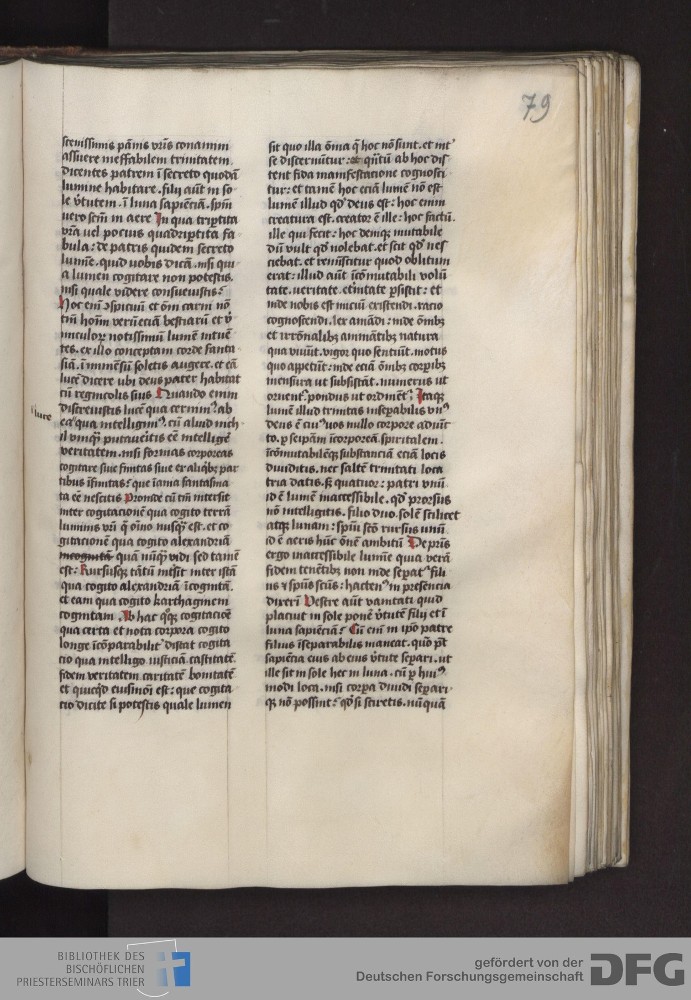 79
scenissimis pānis vr̄is conamini
assuere ineffabilem trinitatem
dicentes patrem ī secreto quodā
lumine habitare. filij aūt in so
le v̓tutem. ī luna sapiēciā. sp̄m
uero scm̄ in aere In qua trip̄tita
vr̄a uel pocius quadrip̄tita fa
bula: de patris quidem secreto
lumīe. quid uobis dicā. nisi qui
a lumen cogitare non potestis.
nisi quale videre consueuistis?
Hoc em̄ ɔspicuū et om̄i carni nō
tm̄ hoīm verū eciā bestiarū et v̓
miculoꝝ notissimū lumē intuē
tes. ex illo conceptam corde fanta
siā. ī inmēsū soletis augere. et eā
lucē dicere ubi deus pater habitat
cū regnicolis suis Quando enim
discreuistis lucē qua cernim᷒ ab
ea qua intelligim᷒. cū aliud nich
luce
il vnqā putaueritis eē intelligē
veritatem. nisi formas corporeas
cogitare siue finitas siue ex aliqb᷒ par
tibus īfinitas? que īania fantasma
ta eē nescitis Proinde cū tm̄ intersit
inter cogitationē qua cogito terrā
luminis vr̄ā q̄ oīno nusqā est. et co
gitationē qua cogito alexandriā
incognitā quā nūqā vidi sed tamē
est: Rursusqꝫ tātū intsit inter istā
qua cogito alexandriā īcognitā.
et eam qua cogito karthaginem
cognitam. Ab hac qꝫ cogitacioē
qua certa et nota corpora cogito
longe īcōparabilit᷒ distat cogita
cio qua intelligo iusticiā castitatē
fidem veritatem caritatē bonitatē
et quicqd eiusmōi est: que cogita
tio dicite si potestis quale lumen
sit quo illa om̄ia q̄ hoc nō sunt. et int᷒
se discernūtur: et qn̄tū ab hoc dis
tent fida manifestacione cognosci
tur: et tamē hoc eciā lumē nō est
lumē illud qd᷒ deus est: hoc enim
creatura est. creator ē ille: hoc factū.
ille qui fecit: hoc demqꝫ mutabile
dū vult qd nolebat. et scit qd᷒ nes
ciebat. et reminiscitur quod oblitum
erat: illud aūt īcōmutabili volū
tate. veritate. et̓nitate ꝑsistit: et
inde nobis est iniciū existendi. racio
cognoscendi. lex amādi: inde om̄ibꝫ
et irrōnalibꝫ animātibꝫ natura
qua viuūt. vigor quo sentiūt. motus
quo appetūt: inde eciā om̄ibꝫ corꝑibꝫ
mensura ut subsistāt. numerus ut
ornent᷒. pondus ut ordinent᷒: Itaqꝫ
lumē illud trinitas inseꝑabilis vn᷒
deus ē cui᷒ uos nullo corpore adiūc
to. ꝑ seipām īcorporeā spiritalem.
īcōmutabilēqꝫ substanciā eciā locis
diuiditis. nec saltē trinitati loca
tria datis. sꝫ quatuor: patri vnū
id ē lumē inaccessibile. qd̄ prorsus
nō intelligitis. filio duo. solē scilicet
atqꝫ lunam: sp̄iui scō rursus unū
id ē aeris hūc om̄ē ambitū De pr̄is
ergo inaccessibile lumīe quia verā
fidem tenētibꝫ non inde seꝑat᷒ fili
us et sp̄us scūs: hacten᷒ in presencia
dixeri Vestre aūt vanitati quid
placuit in sole ponē v̓tutē filij et ī
luna sapiēciā? Cū em̄ in ip̄o patre
filius īseparabilis maneat. quō pt̄
sapiēcia eius ab eius v̓tute seꝑari. ut
ille sit in sole hec in luna. cū ꝑ hui᷒
modi loca. nisi corꝑa diuidi seꝑari
qꝫ nō possint? qd̓ si sciretis. nūquā
BIBLIOTHEK DES
BISCHÖFLICHEN
PRIESTERSEMINARS TRIER
gefördert von der
Deutschen Forschungsgemeinschaft
DFG